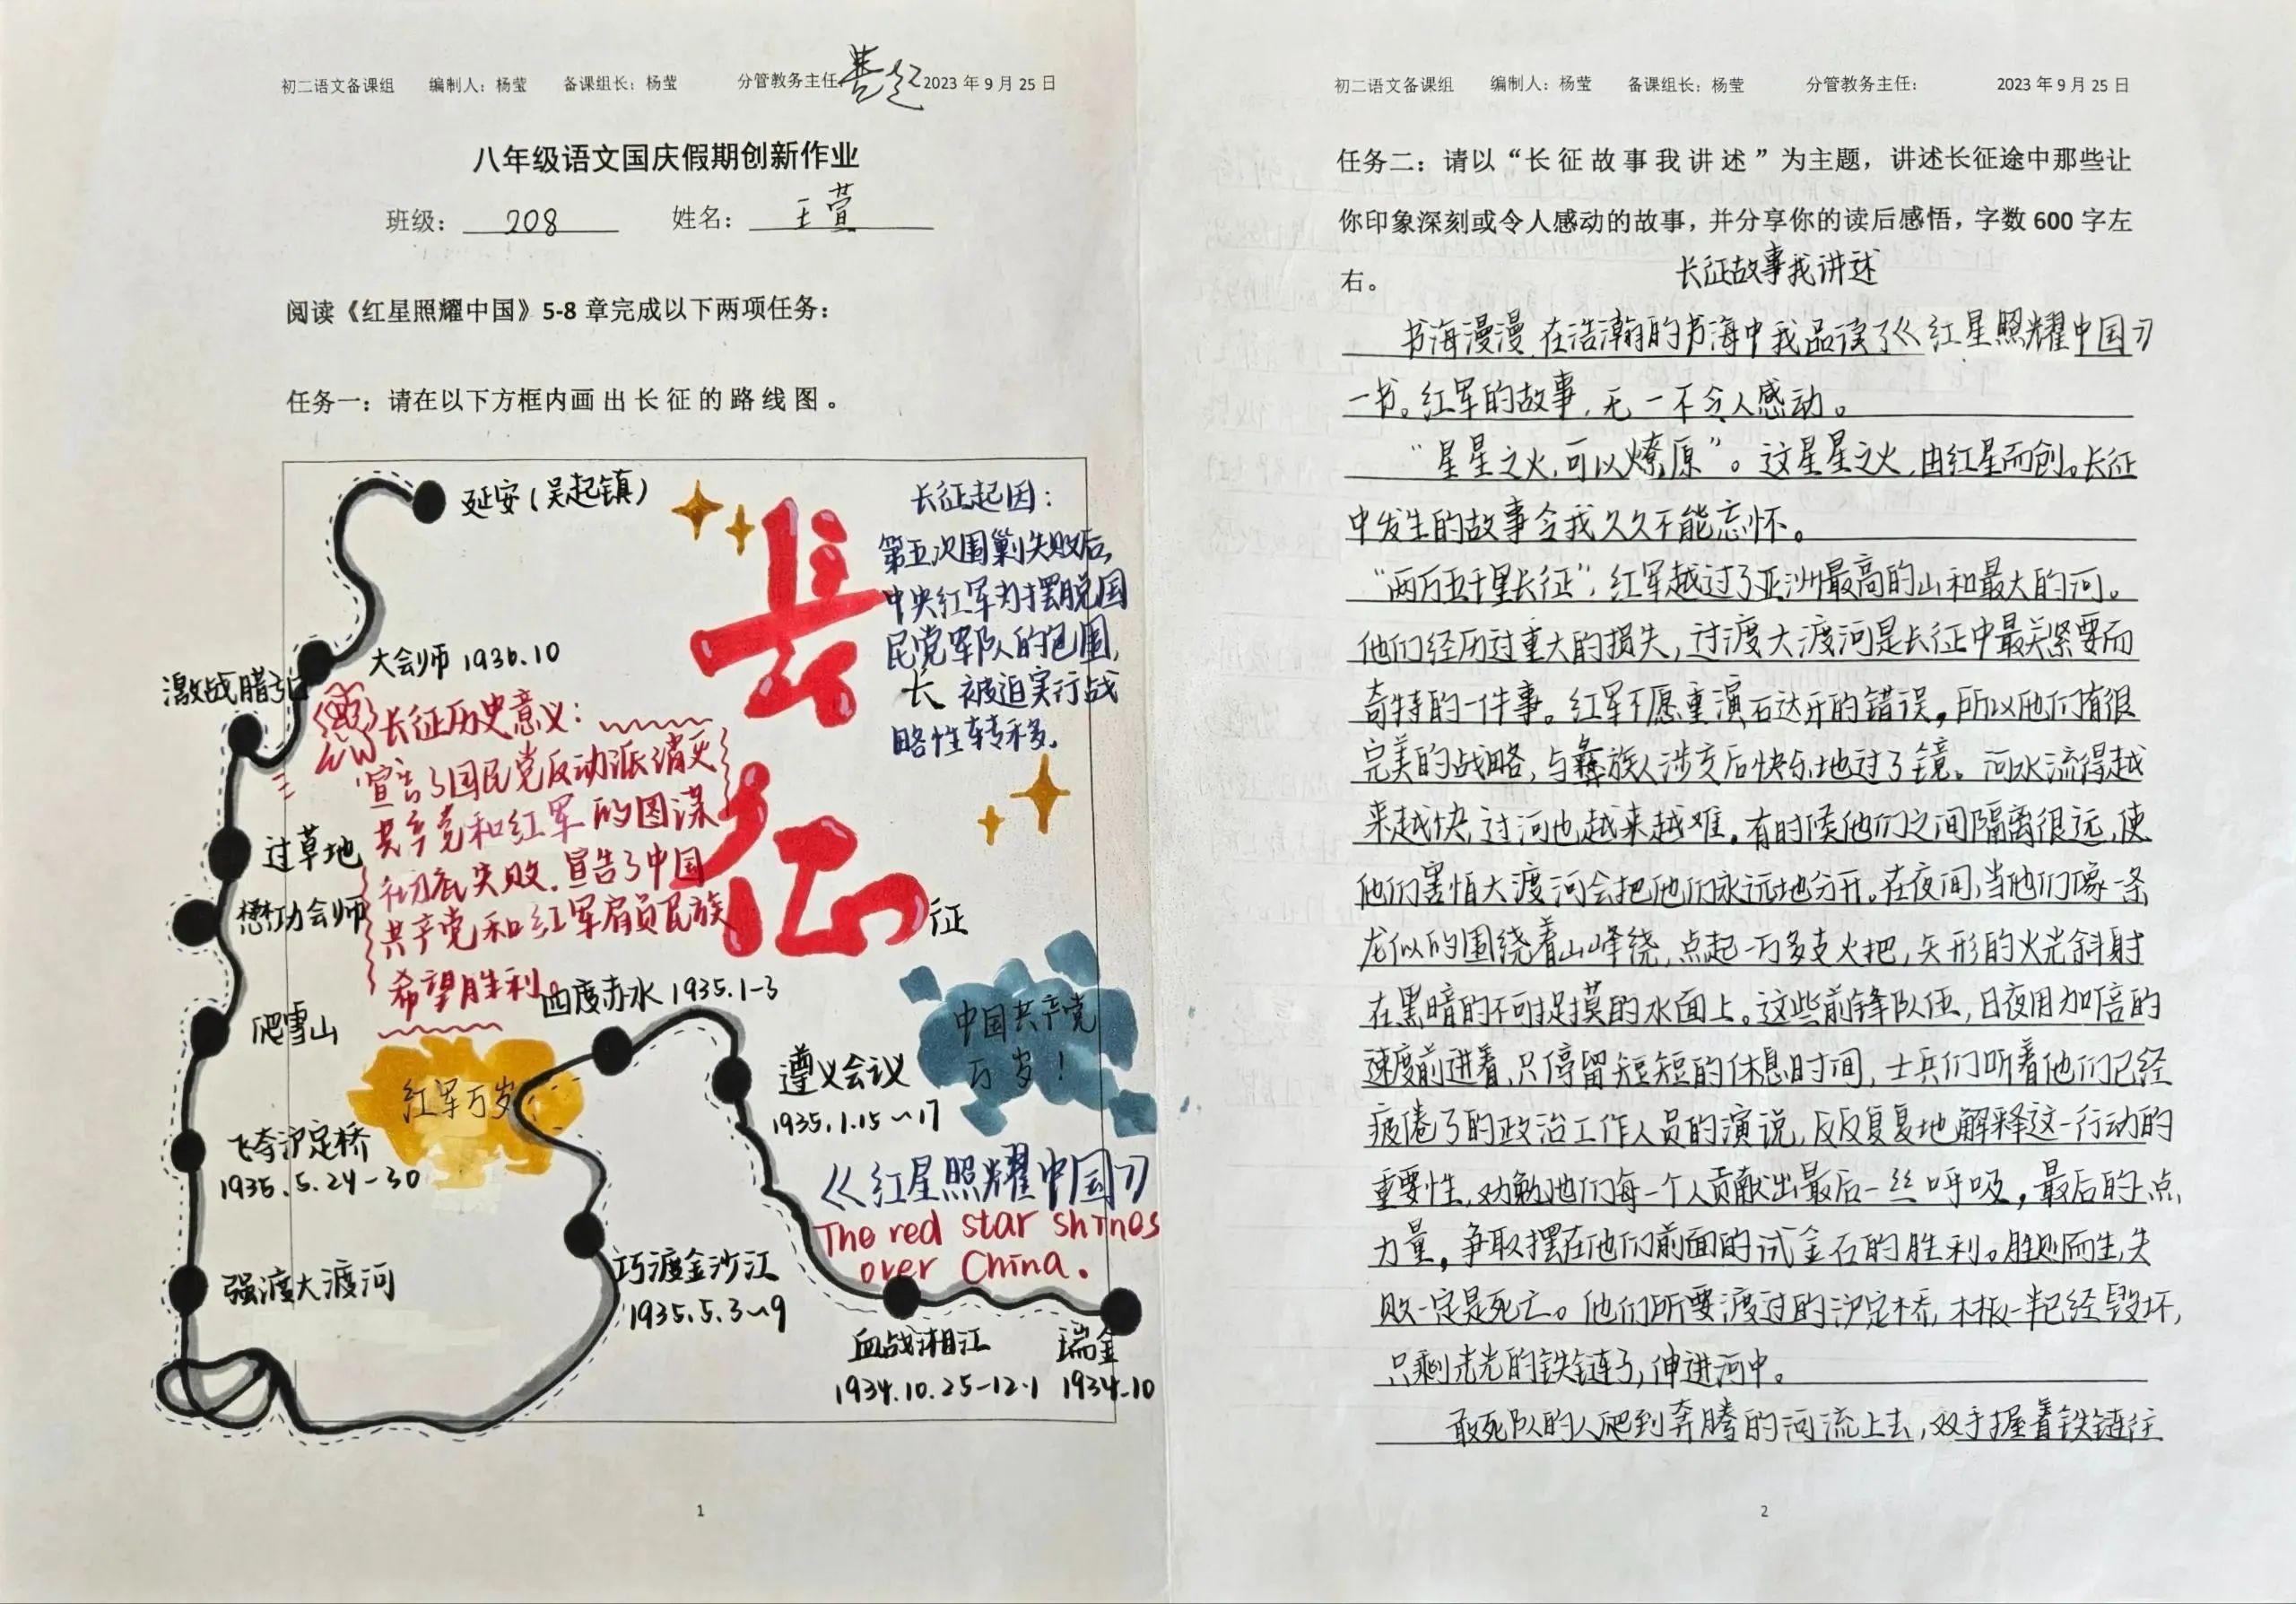 初二语文备课组 编制人：杨莹 备课组长：杨莹 分管教务主任 2023年9月25日
八年级语文国庆假期创新作业
班级： 208 姓名： 王萱
阅读《红星照耀中国》5-8章完成以下两项任务：
任务一：请在以下方框内画出长征的路线图。
延安（吴起镇）
长征起因：
第五次围剿失败后，
中央红军为摆脱国
民党军队的包围，
被迫实行战
略性转移.
长
长
大会师 1936.10
激战腊子口
长征历史意义：
宣告了国民党反动派消灭
共产党和红军的图谋
彻底失败.宣告了中国
共产党和红军肩负民族
希望胜利。
征
征
过草地
懋功会师
爬雪山
四度赤水 1935.1-3
中国共产党
万岁！
红军万岁
遵义会议
1935.1.15~17
飞夺泸定桥
1935.5.24-30
《红星照耀中国》
The red star shines
over China.
强渡大渡河
巧渡金沙江
1935.5.3~9
血战湘江
1934.10.25-12.1
瑞金
1934.10
1
初二语文备课组 编制人：杨莹 备课组长：杨莹 分管教务主任： 2023年9月25日
任务二：请以“长征故事我讲述”为主题，讲述长征途中那些让
你印象深刻或令人感动的故事，并分享你的读后感悟，字数600字左
右。
长征故事我讲述
书海漫漫,在浩瀚的书海中我品读了《红星照耀中国》
一书。红军的故事,无一不令人感动。
“星星之火,可以燎原”。这星星之火,由红星而创。长征
中发生的故事令我久久不能忘怀。
“两万五千里长征”,红军越过了亚洲最高的山和最大的河。
他们经历过重大的损失,过渡大渡河是长征中最关紧要而
奇特的一件事。红军不愿重演石达开的错误,所以他们有很
完美的战略,与彝族人涉交后快乐地过了镜。河水流得越
来越快,过河也越来越难。有时候他们之间隔离很远,使
他们害怕大渡河会把他们永远地分开。在夜间,当他们像一条
龙似的围绕着山峰绕,点起一万多支火把,矢形的火光斜射
在黑暗的不可捉摸的水面上。这些前锋队伍,日夜用加倍的
速度前进着,只停留短短的休息时间,士兵们听着他们已经
疲倦了的政治工作人员的演说,反反复复地解释这一行动的
重要性,劝勉他们每一个人贡献出最后一丝呼吸,最后的一点
力量,争取摆在他们前面的试金石的胜利。胜则而生,失
败一定是死亡。他们所要渡过的泸定桥,木板一半已经毁坏,
只剩光光的铁链了,伸进河中。
敢死队的人爬到奔腾的河流上去,双手握着铁链往
2